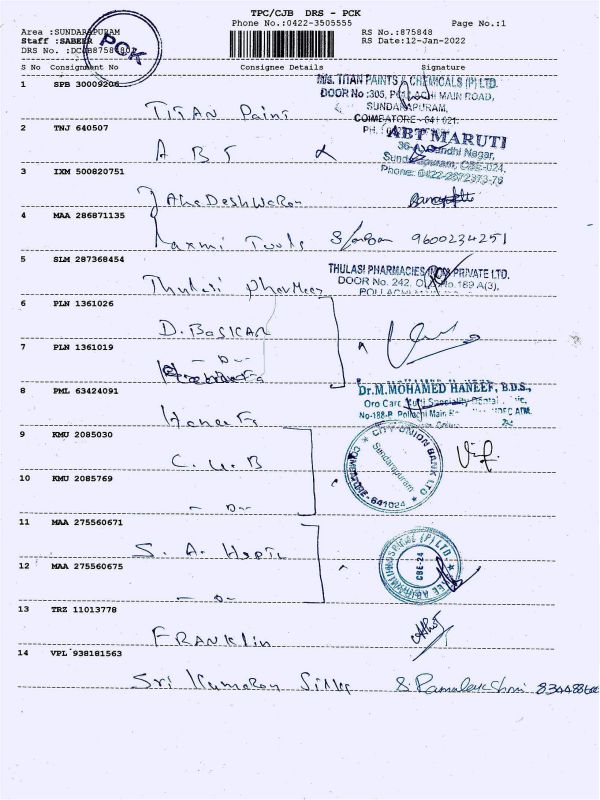 TPC/CJB DRS - PCK
Phone No.:0422-3505555 Page No.:1
Area :SUNDARAPURAM RS No.:875848
Staff :SABEER RS Date:12-Jan-2022
DRS No. :DCJB875848
PCK
S No Consignment No Consignee Details Signature
1 SPB 30009206
M/s. TITAN PAINTS & CHEMICALS (P) LTD.
DOOR No :305, POLLACHI MAIN ROAD,
SUNDARAPURAM,
COIMBATORE - 641 021.
PH. :
TITAN Paint
2 TNJ 640507
ABT MARUTI
Gandhi Nagar,
Sundarapuram, CBE-024.
Phone: 0422-2672373-76
A B T
3 IXM 500820751
4 MAA 286871135
Laxmi Tools 9600234251
5 SLM 287368454
THULASI PHARMACIES INDIA PRIVATE LTD.
DOOR No. 242, OLD No.189 A(3),
POLLACHI MAIN
Thulasi Pharmacy
6 PLN 1361026
D. BASKAR
7 PLN 1361019
- D -
8 PML 63424091
Dr.M.MOHAMED HANEEF, B.D.S.,
Oro Care Multi Speciality Dental Clinic,
No-188-B, Pollachi Main HDFC ATM.
Haneef
9 KMU 2085030
C. U. B
CITY UNION BANK LTD
Sundarapuram
COIMBATORE-641024
10 KMU 2085769
- D -
11 MAA 275560671
S. A. Hsptl
HOSPITAL (P) LTD
CBE-24
12 MAA 275560675
- D -
13 TRZ 11013778
FRANKLIN
14 VPL 938181563
Sri Kumaran Silks